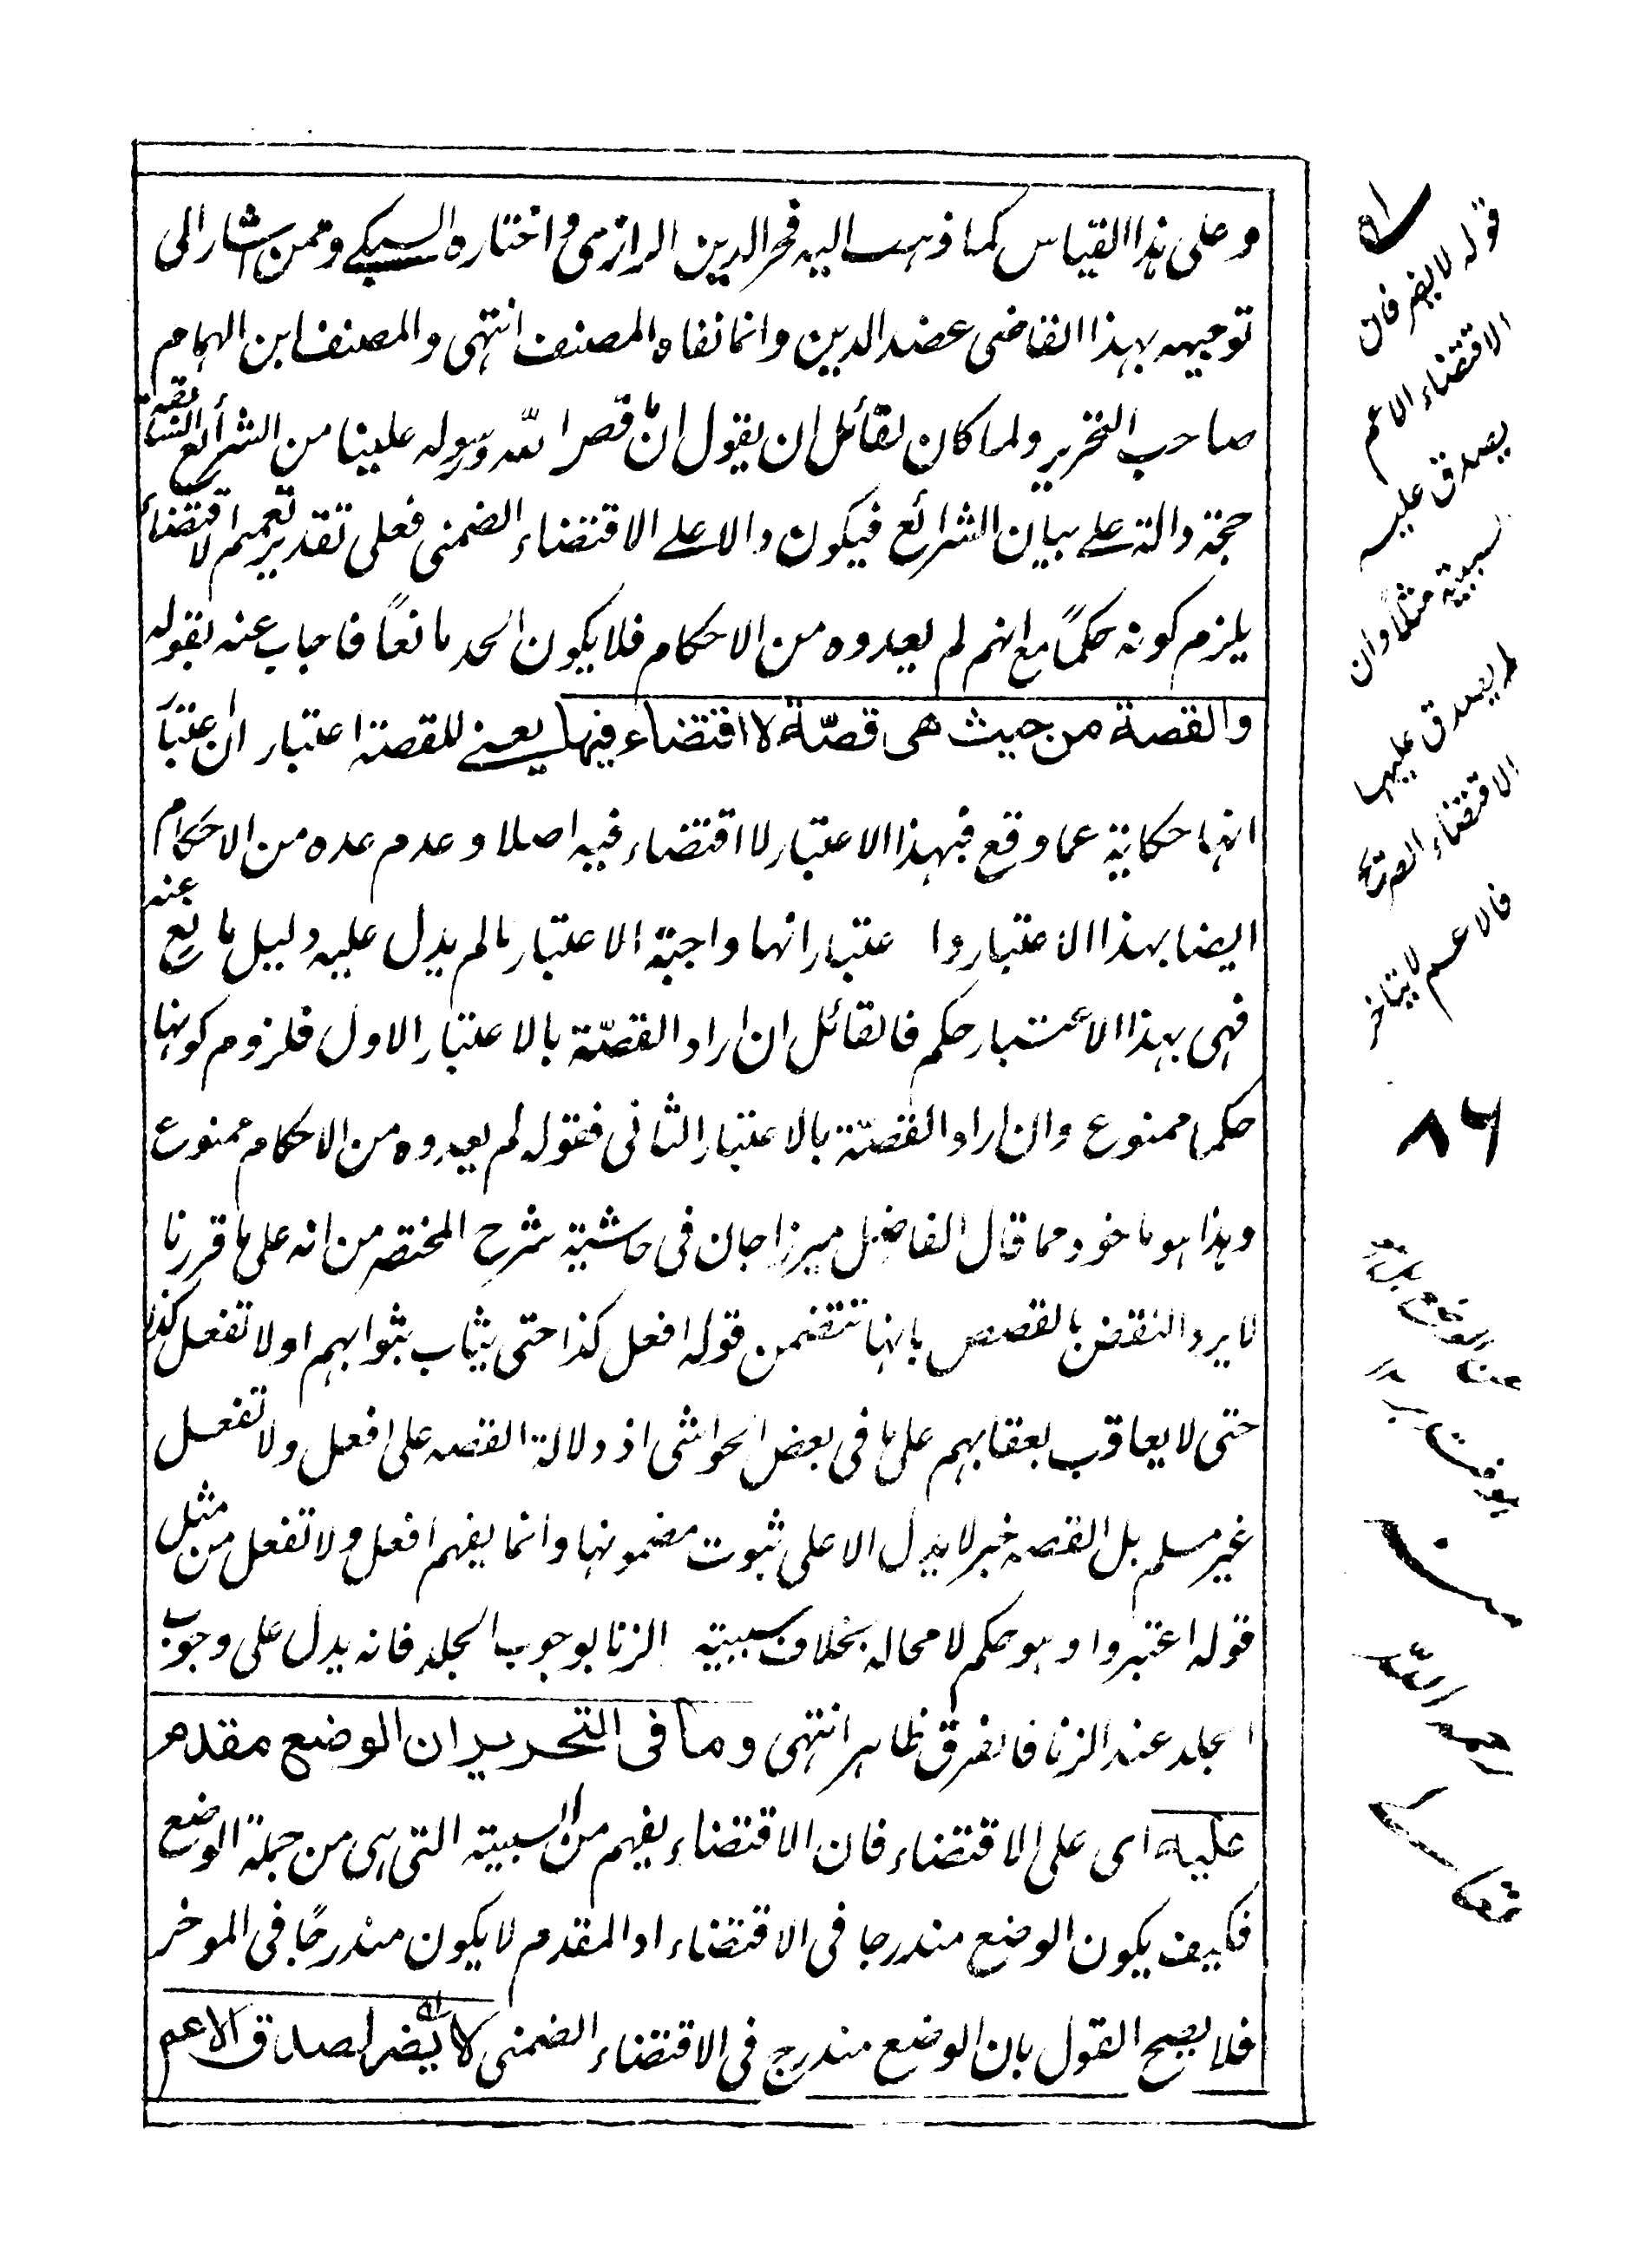 وعلى هذا القياس كما ذهب اليه فخر الدين الرازى واختاره السبكى وممن اشار الى
توجيهه بهذا القاضى عضد الدين وانما نفاه المصنف انتهى والمصنف ابن الهمام
صاحب التحرير ولما كان لقائل ان يقول ان ما قص الله ورسوله علينا من الشرائع السابقة
حجة دالة على بيان الشرائع فيكون دالا على الاقتضاء الضمنى فعلى تقدير تعميم الاقتضاء
يلزم كونه حكماً مع انهم لم يعدوه من الاحكام فلا يكون الحد مانعاً فاجاب عنه بقوله
والقصة من حيث هى قصّة لا اقتضاء فيها يعنى للقصة اعتبار ان اعتبار
انها حكاية عما وقع فبهذا الاعتبار لا اقتضاء فيه اصلا وعدم عده من الاحكام
ايضا بهذا الاعتبار وا عتبار انها واجبة الاعتبار ما لم يدل عليه دليل مانع عنه
فهى بهذا الاعتبار حكم فالقائل ان اراد القصّة بالاعتبار الاول فلزوم كونها
حكما ممنوع وان اراد القصّة بالاعتبار الثانى فقوله لم يعدوه من الاحكام ممنوع
وهذا هو ماخوذ مما قال الفاضل ميرزا جان فى حاشية شرح المختصر من انه على ما قررنا
لا يرد النقض بالقصص بانها تتضمن قوله افعل كذا حتى يثاب بثوابهم او لا تفعل كذا
حتى لا يعاقب بعقابهم على ما فى بعض الحواشى اذ دلالة القصه على افعل ولا تفعل
غير مسلم بل القصه خبر لا يدل الا على ثبوت مضمونها وانما يفهم افعل ولا تفعل من مثل
قوله اعتبروا وهو حكم لا محاله بخلاف سببية الزنا لوجوب الجلد فانه يدل على وجوب
الجلد عند الزنا فالفرق ظاهر انتهى وما فى التحرير ان الوضع مقدم
عليه اى على الاقتضاء فان الاقتضاء يفهم من السببية التى هى من جملة الوضع
فكيف يكون الوضع مندرجا فى الاقتضاء اذ المقدم لا يكون مندرجًا فى الموخر
فلا يصح القول بان الوضع مندرج فى الاقتضاء الضمنى لا يضر لصدق الاعم
قوله لا يضر فان
الاقتضاء الاعم
يصدق عليه
سببية مثلا وان
لم يصدق عليها
الاقتضاء الصريح
فالاعم لا يتاخر